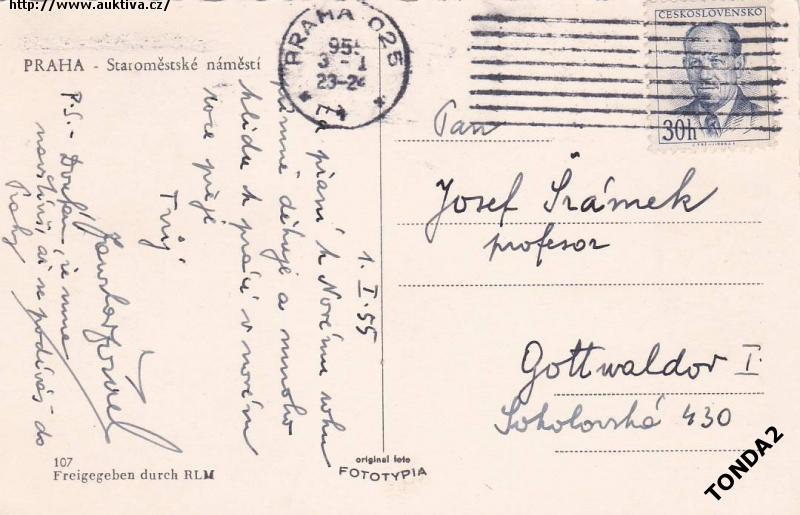 http://www.auktiva.cz/
PRAHA - Staroměstské náměstí
PRAHA 025
95
3 - 1
23-24
ČESKOSLOVENSKO
30h
1. I. 55
Za přání k Novému roku
upřímně děkuje a mnoho
klidu k práci v novém
roce přeje
Tvůj
P.S. - Doufám, že mne
navštívíš až se podíváš do
Prahy
Pan
Josef Šrámek
profesor
Gottwaldov I.
Sokolovská 430
107
Freigegeben durch RLM
original foto
FOTOTYPIA
TONDA2